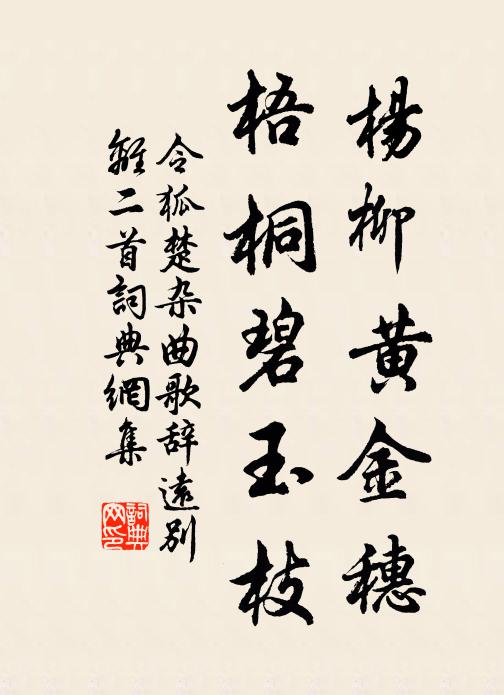 楊柳黄金穗
梧桐碧玉枝
令狐楚杂曲歌辞遠別
離二首詞典網集
詞典网印